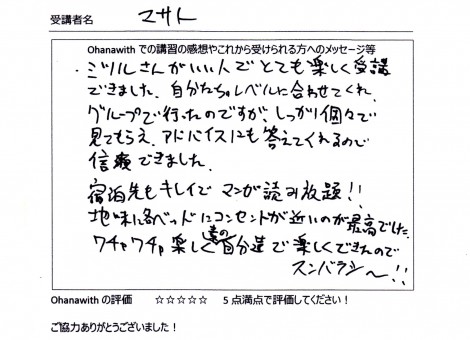 受講者名 マサト
Ohanawith での講習の感想やこれから受けられる方へのメッセージ等
・ミツルさんがいい人でとても楽しく受講
できました。自分たちのレベルに合わせてくれ、
グループで行ったのですが、しっかり個々で
見てもらえ、アドバイスにも答えてくれるので
信頼できました。
宿泊先もキレイで マンガ読み放題！！
地味に各ベッドにコンセントが近いのが最高でした。
ワチャワチャ楽しく 自分達で楽しくできたので
スンバラシ〜！！
Ohanawith の評価 ☆☆☆☆☆ 5 点満点で評価してください！
ご協力ありがとうございました！